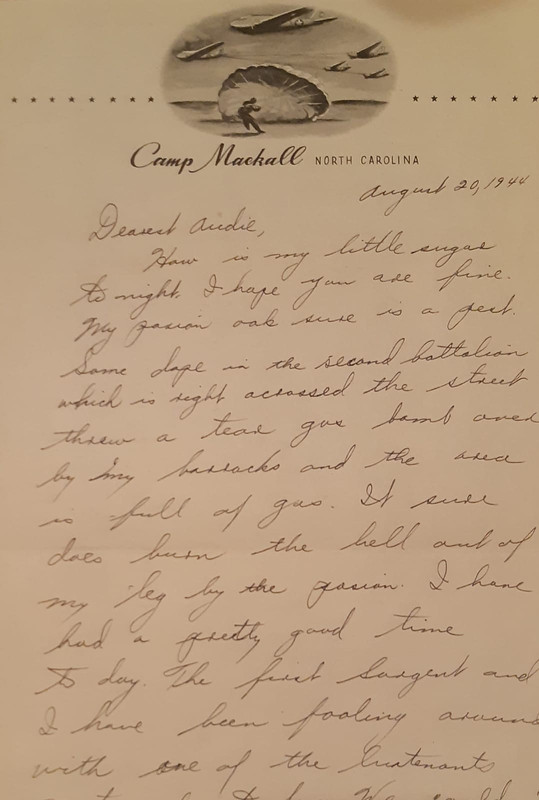 Camp Mackall NORTH CAROLINA
August 20, 1944
Dearest Audie,
How is my little sugar
to night. I hope you are fine.
My posion oak sure is a pest.
Some dope in the second battalion
which is right acrossed the street
threw a tear gas bomb over
by my barracks and the area
is full of gas. It sure
does burn the hell out of
my leg by the posion. I have
had a pretty good time
to day. The first sargent and
I have been fooling around
with one of the lieutenants